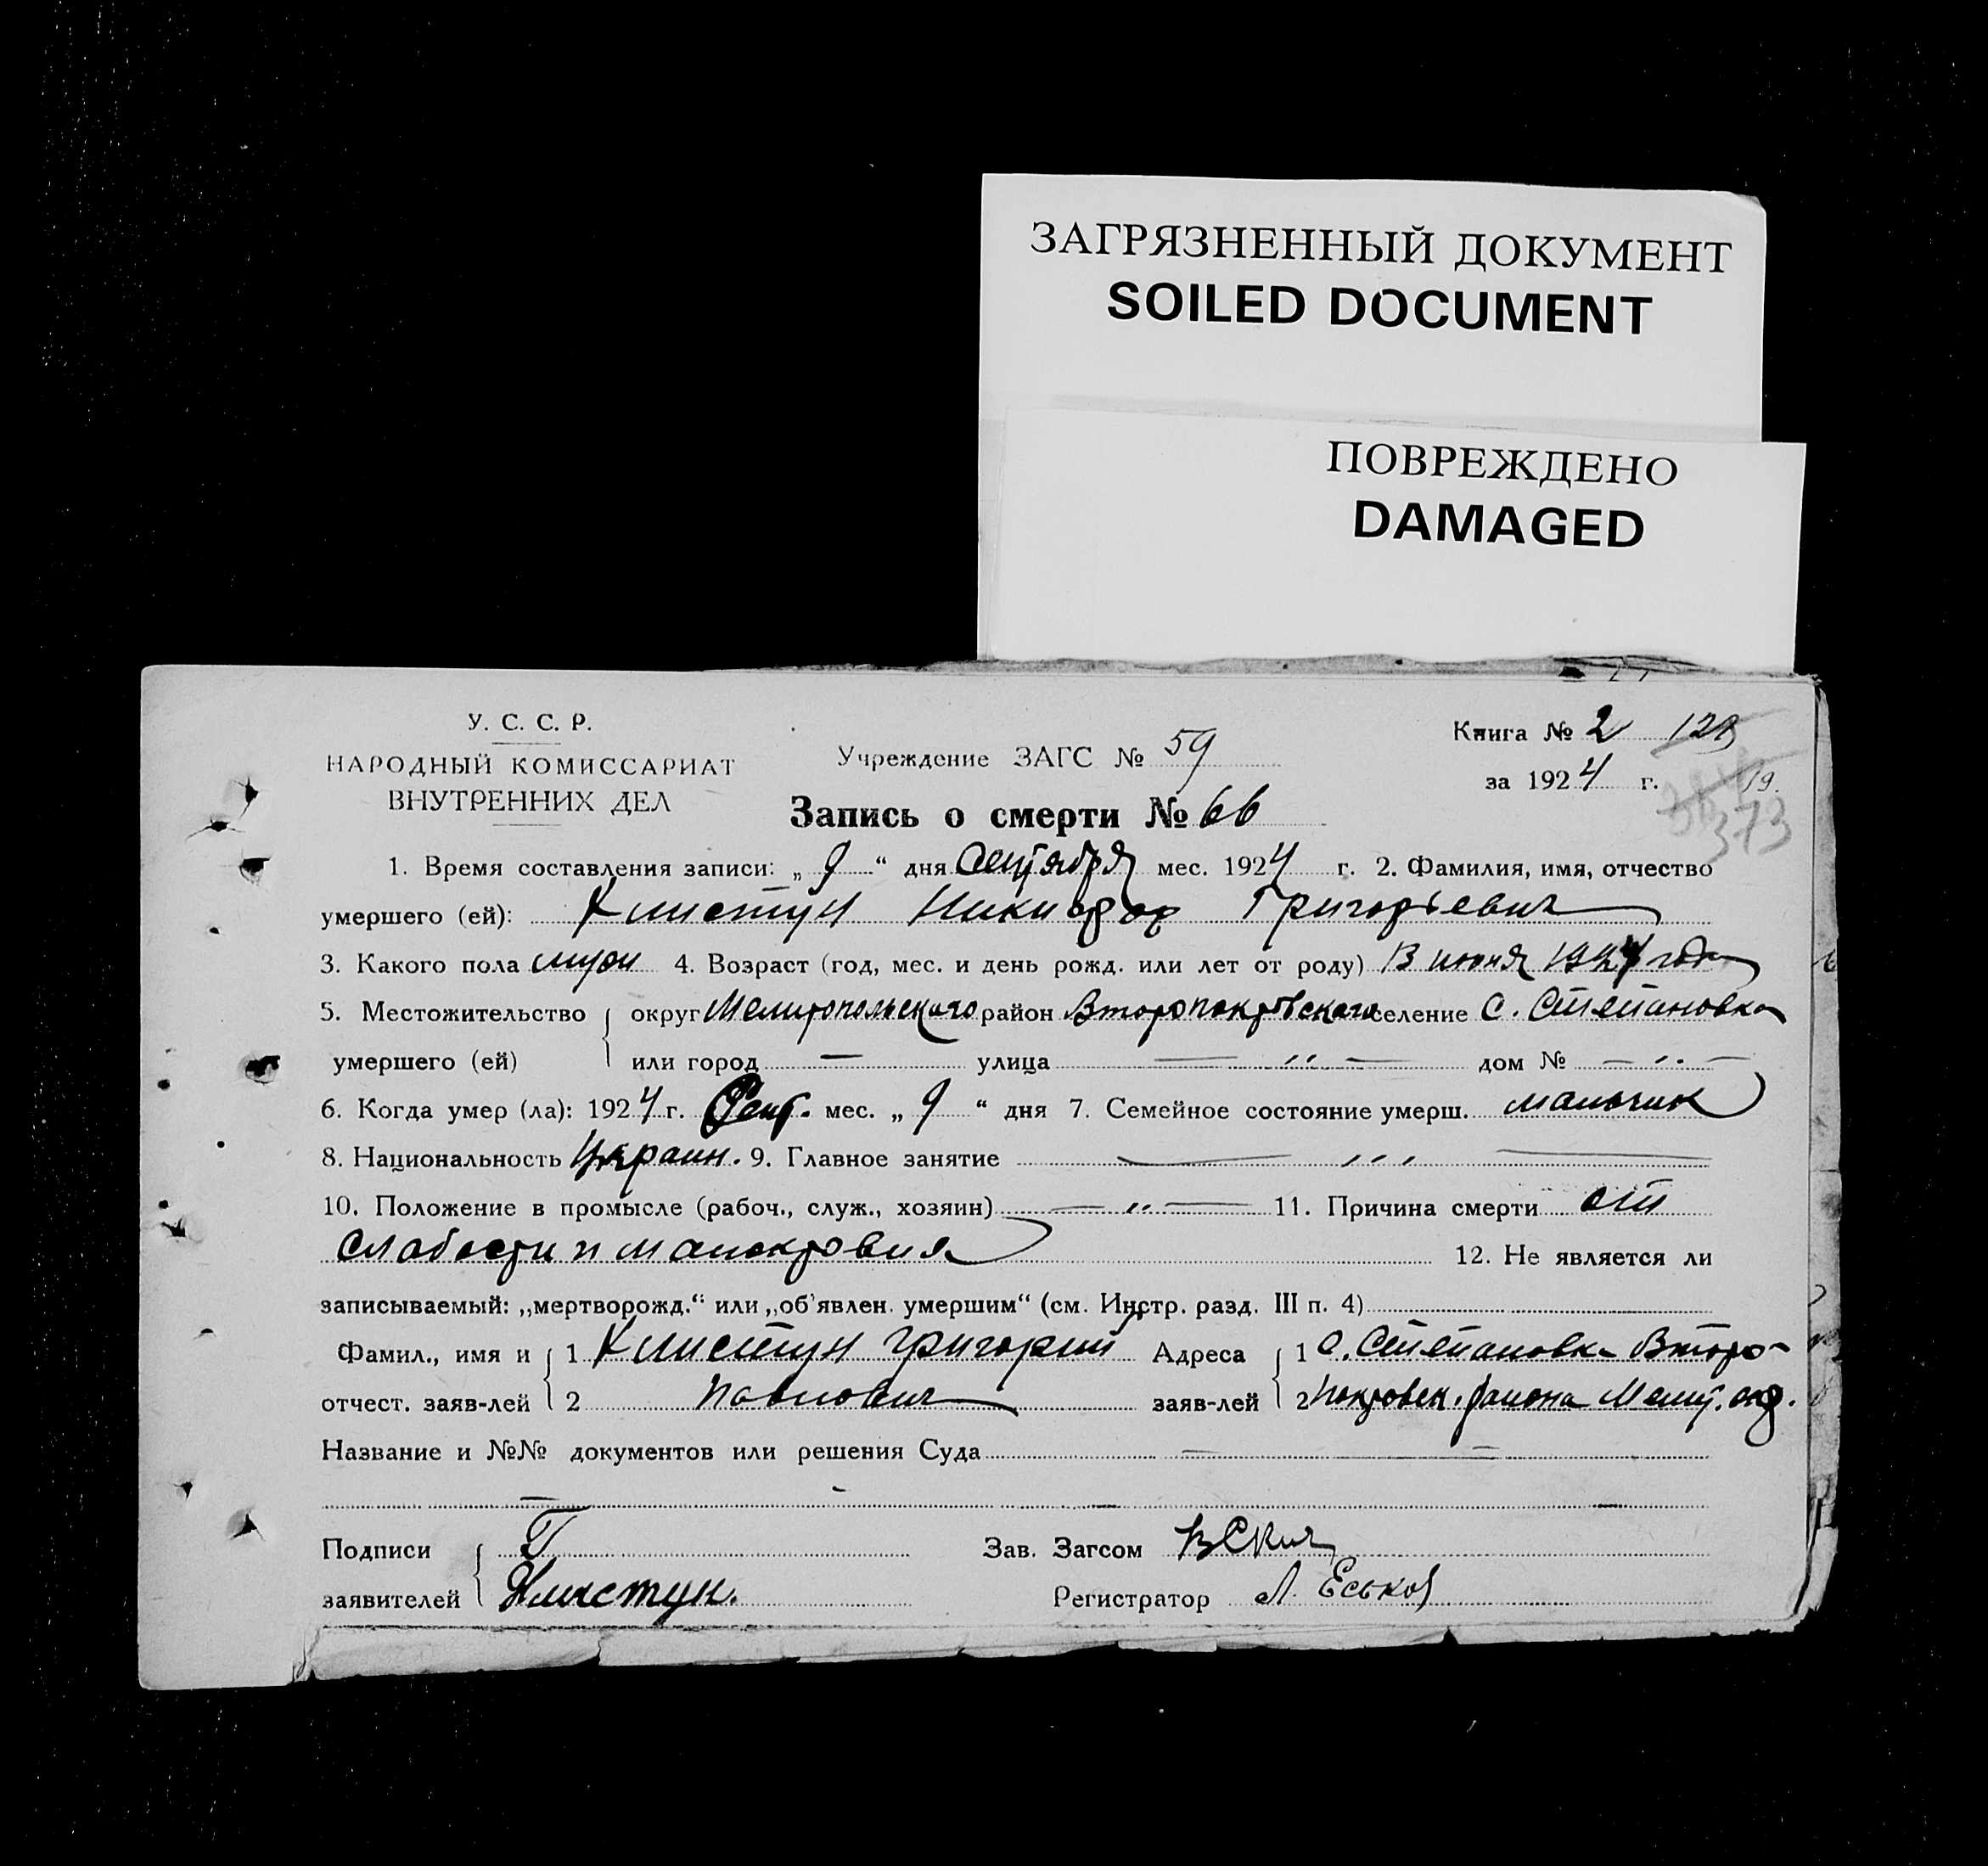 ЗАГРЯЗНЕННЫЙ ДОКУМЕНТ
SOILED DOCUMENT
ПОВРЕЖДЕНО
DAMAGED
У. С. С. Р.
НАРОДНЫЙ КОМИССАРИАТ
ВНУТРЕННИХ ДЕЛ
Учреждение ЗАГС № 59
Книга № 2
за 1924 г.
373
Запись о смерти № 66
1. Время составления записи: „ 9 “ дня Сентября мес. 1924 г. 2. Фамилия, имя, отчество
умершего (ей): Хлистун Никифор Григорьевич
3. Какого пола муж 4. Возраст (год, мес. и день рожд. или лет от роду) 13 июня 1924 года
5. Местожительство округ Мелитопольского район Второпокровского селение с. Степановка
умершего (ей) или город — улица — " — дом № — " —
6. Когда умер (ла): 1924 г. Сент. мес. „ 9 “ дня 7. Семейное состояние умерш. мальчик
8. Национальность Украин. 9. Главное занятие — " —
10. Положение в промысле (рабоч., служ., хозяин) — " — 11. Причина смерти от
слабости и малокровия 12. Не является ли
записываемый: „мертворожд.“ или „об'явлен. умершим“ (см. Инстр. разд. III п. 4)
Фамил., имя и 1 Хлистун Григорий Адреса 1 с. Степановка Второ-
отчест. заяв-лей 2 Павлович заяв-лей 2 покровск. района Мелит. окр.
Название и №№ документов или решения Суда — —
Подписи Г Зав. Загсом
заявителей Хлистун. Регистратор Л. Еськов